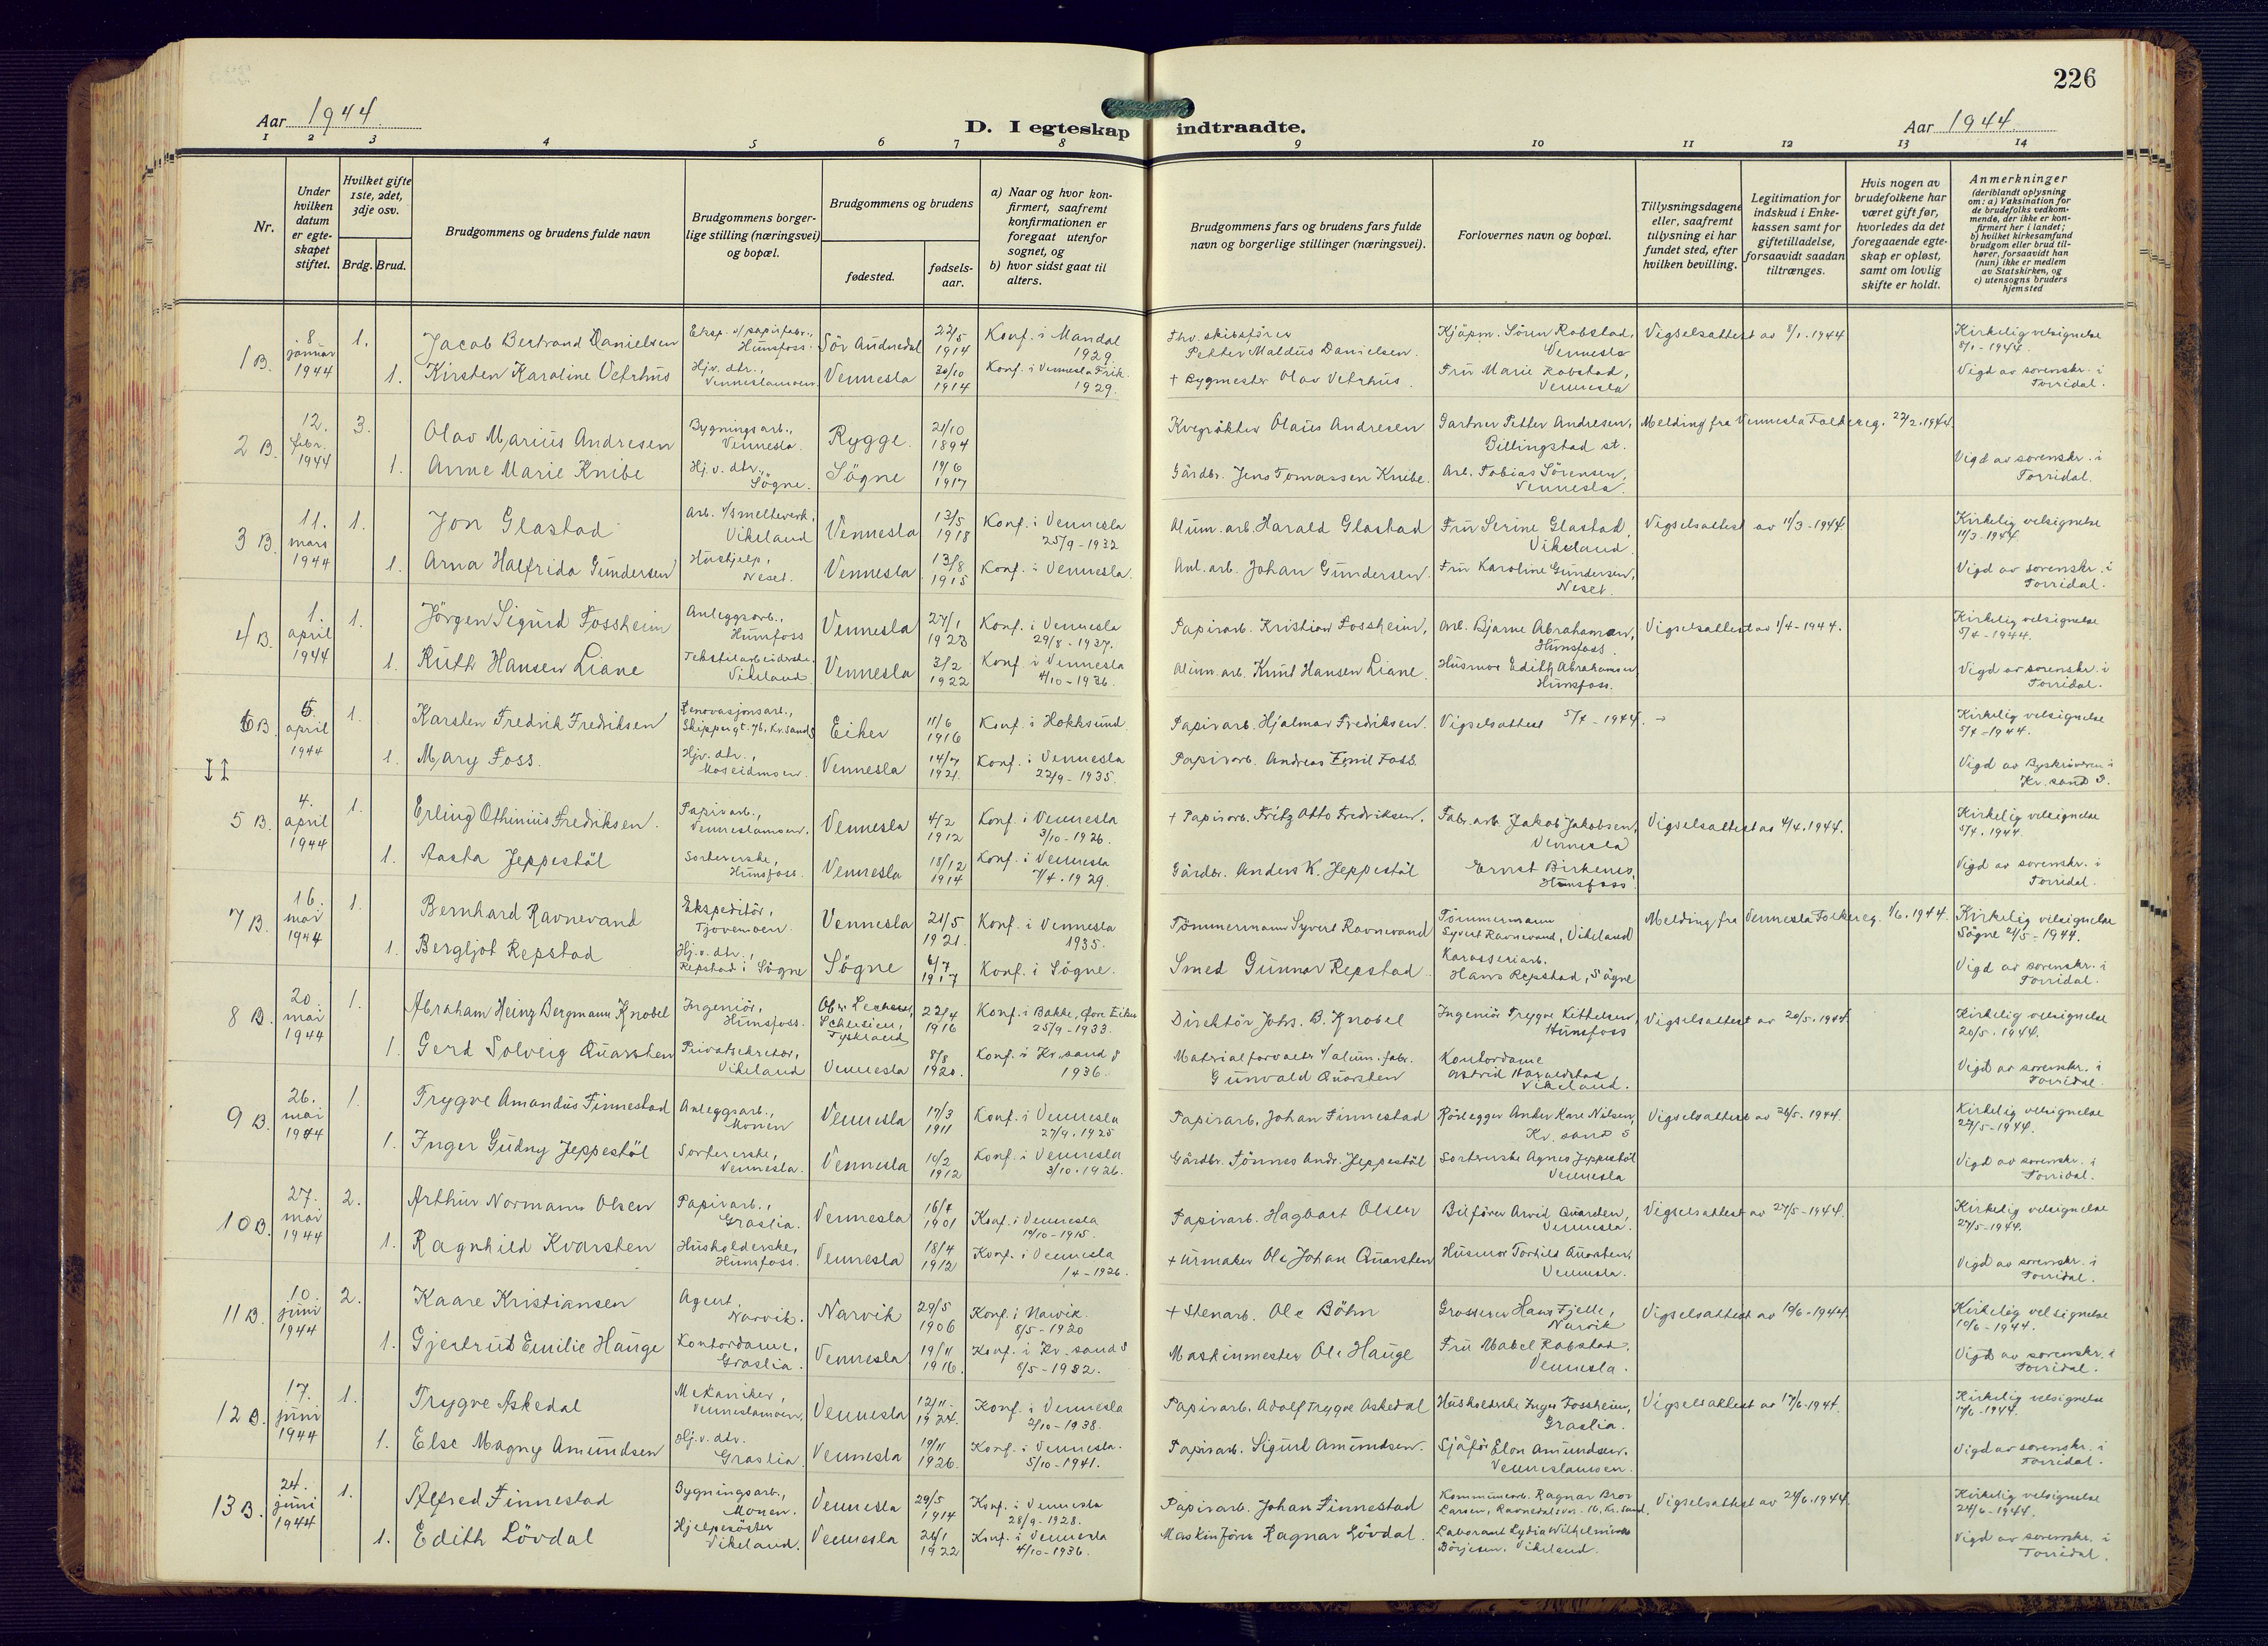 226
Aar 1944.
D. I egteskap indtraadte.
Aar 1944.
1 2 3 4 5 6 7 8 9 10 11 12 13 14
Nr.
Under hvilken datum er egte-skapet stiftet.
Hvilket gifte 1ste, 2det, 3dje osv.
Brdg. Brud.
Brudgommens og brudens fulde navn
Brudgommens borger-lige stilling (næringsvei) og bopæl.
Brudgommens og brudens
fødested.
fødsels-aar.
a) Naar og hvor kon-firmert, saafremt konfirmationen er foregaat utenfor sognet, og
b) hvor sidst gaat til alters.
Brudgommens fars og brudens fars fulde navn og borgerlige stillinger (næringsvei).
Forlovernes navn og bopæl.
Tillysningsdagene eller, saafremt tillysning ei har fundet sted, efter hvilken bevilling.
Legitimation for indskud i Enke-kassen samt for giftetilladelse, forsaavidt saadan tiltrænges.
Hvis nogen av brudefolkene har været gift før, hvorledes da det foregaaende egte-skap er opløst, samt om lovlig skifte er holdt.
Anmerkninger (deriblandt oplysning om: a) Vaksination for de brudefolks vedkom-mende, der ikke er kon-firmert her i landet; b) hvilket kirkesamfund brudgom eller brud til-hører, forsaavidt han (hun) ikke er medlem av Statskirken, og c) utensogns bruders hjemsted
1 B. 8. januar 1944 1. Jacob Bertrand Danielsen Eksp. v/papirfabr., Hunsfoss. Sör Audnedal 22/5 1914 Konf. i Mandal 1929. Fhv. skibsförer Petter Maldus Danielsen. Kjöpm. Sören Robstad, Vennesla Vigselsattest av 8/1. 1944 Kirkelig velsignelse 8/1 - 1944.
1. Kirsten Karoline Vetrhus Hjv. dtr., Venneslamoen. Vennesla 30/10 1914 Konf. i Vennesla Frik. 1929. + Bygmester Olav Vetrhus. Fru Marie Robstad, Vennesla Vigd av sorenskr. i Torridal.
2 B. 12. febr. 1944 3. Olav Marius Andresen Bygningsarb., Vennesla. Rygge. 21/10 1894 Kvegrökter Olaus Andresen Gartner Petter Andresen, Billingstad st. Melding fra Vennesla Folkereg. 22/2. 1944.
1. Anne Marie Knibe Hj. v. dtr., Sögne. Sögne 19/6 1917 Gårdbr. Jens Tomassen Knibe. Arb. Tobias Sörensen, Vennesla. Vigd av sorenskr. i Torridal.
3 B. 11. mars 1944 1. Jon Glastad Arb. v/smelteverk, Vikeland Vennesla 13/5 1918 Konf. i Vennesla 25/9 - 1932 Alum. arb. Harald Glastad Fru Serine Glastad, Vikeland. Vigselsattest av 11/3 - 1944. Kirkelig velsignelse 11/3 - 1944.
1. Arna Halfrida Gundersen Hushjelp, Neset. Vennesla 13/8 1915 Konf. i Vennesla. Anl. arb. Johan Gundersen. Fru Karoline Gundersen, Neset. Vigd av sorenskr. i Torridal.
4 B. 1. april 1944 1. Jörgen Sigurd Fossheim Anleggsarb., Hunsfoss Vennesla 27/1 1923 Konf. i Vennesla 29/8 - 1937. Papirarb. Kristian Fossheim, Arb. Bjarne Abrahamsen, Hunsfoss. Vigselsattest av 1/4 - 1944. Kirkelig velsignelse 5/4 - 1944.
1. Ruth Hansen Liane Tekstilarbeiderske. Vikeland Vennesla 3/2 1922 Konf. i Vennesla 4/10 - 1936. Alum. arb. Knut Hansen Liane. Husmor Edith Abrahamsen Hunsfoss. Vigd av sorenskr. i Torridal.
6 B. 5. april 1944 1. Karsten Fredrik Fredriksen Renovasjonsarb., Skippergt. 76, Kr.sand S Eiker 11/6 1916 Konf. i Hokksund. Papirarb. Hjalmar Fredriksen. Vigselsattest 5/4 - 1944. → Kirkelig velsignelse 5/4 - 1944.
↓↑ 1. Mary Foss. Hjv. dtr., Moseidmoen. Vennesla 14/7 1921. Konf. i Vennesla 22/9 - 1935. Papirarb. Andreas Emil Foss. Vigd av Byskriveren i Kr.sand S.
5 B. 4. april 1944 1. Erling Othinius Fredriksen. Papirarb., Venneslamoen. Vennesla 4/2 1912 Konf. i Vennesla 3/10 - 1926. + Papirarb. Fritz Otto Fredriksen. Fabr. arb. Jakob Jakobsen, Vennesla Vigselsattest av 4/4. 1944. Kirkelig velsignelse 5/4. 1944.
1. Aasta Jeppestöl Sortererske, Hunsfoss. Vennesla 18/12 1914 Konf. i Vennesla 7/4. 1929. Gårdbr. Anders K. Jeppestöl Ernst Birkenes, Hunsfoss. Vigd av sorenskr. i Torridal.
7 B. 16. mai 1944 1. Bernhard Ravnevand Ekspeditör, Tjovemoen. Vennesla 21/5 1921. Konf. i Vennesla 1935. Tömmermann Syvert Ravnevand Tömmermann Syvert Ravnevand, Vikeland Melding fra Vennesla Folkereg. 1/6. 1944. Kirkelig velsignelse Sögne 21/5 - 1944.
1. Bergljot Repstad Hj.v. dtr., Repstad i Sögne Sögne 6/7 1917 Konf. i Sögne. Smed Gunnar Repstad. Karosseriarb. Hans Repstad, Sögne Vigd av sorenskr. i Torridal.
8 B. 20. mai 1944 1. Abraham Heinz Bergmann Knobel Ingeniör, Hunsfoss. Schlesien, Tyskland 22/4 1916 Konf. i Bakke, Övre Eiker 25/9 - 1933. Direktör Johs. B. Knobel Ingeniör Trygve Kittelsen, Hunsfoss Vigselsattest av 20/5. 1944. Kirkelig velsignelse 20/5. 1944.
1. Gerd Solveig Quarsten Privatsekretær, Vikeland Vennesla 8/8 1920. Konf. i Kr.sand S 1936. Materialforvalter v/alum. fabr. Gunvald Quarsten Kontordame Astrid Haraldstad Vikeland. Vigd av sorenskr. i Torridal.
9 B. 26. mai 1944 1. Trygve Amandus Finnestad Anleggsarb., Monen Vennesla 17/3 1911 Konf. i Vennesla 27/9. 1925 Papirarb. Johan Finnestad Rörlegger Anker Kare Nilsen, Kr. sand S Vigselsattest av 26/5. 1944. Kirkelig velsignelse 27/5 - 1944.
1. Inger Gudny Jeppestöl Sortererske, Vennesla. Vennesla 10/2 1912 Konf. i Vennesla 3/10. 1926. Gårdbr. Tönnes Andr. Jeppestöl Sortererske Agnes Jeppestöl Vennesla Vigd av sorenskr. i Torridal.
10 B. 27. mai 1944 2. Arthur Normann Olsen Papirarb., Graslia. Vennesla 16/7 1901 Konf. i Vennesla 10/10 - 1915. Papirarb. Hagbart Olsen Bilförer Arvid Quarsten, Vennesla. Vigselsattest av 27/5 - 1944. Kirkelig velsignelse 27/5 - 1944.
1. Ragnhild Kvarsten Husholderske, Hunsfoss. Vennesla 18/4 1912 Konf. i Vennesla /4 - 1926. + Urmaker Ole Johan Quarsten Husmor Torhild Quarsten, Vennesla. Vigd av sorenskr. i Torridal.
11 B. 10. juni 1944 2. Kaare Kristiansen Agent, Narvik. Narvik 29/5 1906 Konf. i Narvik. 8/5 - 1920 + Stenarb. Ole Böhn Grosserer Hans Fjelle, Narvik Vigselsattest av 10/6 - 1944. Kirkelig velsignelse 10/6 - 1944.
1. Gjertrud Emilie Hauge Kontordame, Graslia. Vennesla 19/11 1916. Konf. i Kr.sand S 8/5 - 1932. Maskinmester Ole Hauge Fru Mabel Robstad. Vennesla. Vigd av sorenskr. i Torridal.
12 B. 17. juni 1944 1. Trygve Askedal Mekaniker, Venneslamoen. Vennesla 12/11. 1924. Konf. i Vennesla 2/10 - 1938. Papirarb. Adolf Trygve Askedal Husholderske Inger Fossheim, Graslia. Vigselsattest av 17/6 - 1944. Kirkelig velsignelse 17/6 - 1944.
1. Else Magny Amundsen Hj.v. dtr. Graslia. Vennesla 19/11 1926. Konf. i Vennesla. 5/10 - 1941. Papirarb. Sigurd Amundsen. Sjåför Elon Amundsen. Venneslamoen. Vigd av sorenskr. i Torridal.
13 B. 24. juni 1944 1. Alfred Finnestad Bygningsarb., Monen. Vennesla 29/5 1914 Konf. i Vennesla 28/9 - 1928. Papirarb. Johan Finnestad Kommunearb. Ragnar Bror Larsen, Ravnedalsvn. 16, Kr.sand. Vigselsattest av 24/6. 1944. Kirkelig velsignelse 24/6 - 1944.
1. Edith Lövdal Hjelpesöster Vikeland. Vennesla 26/1 1922 Konf. i Vennesla 4/10 - 1936. Maskinförer Ragnar Lövdal. Laborant Lydia Wilhelmine Börjesen, Vikeland. Vigd av sorenskr. i Torridal.